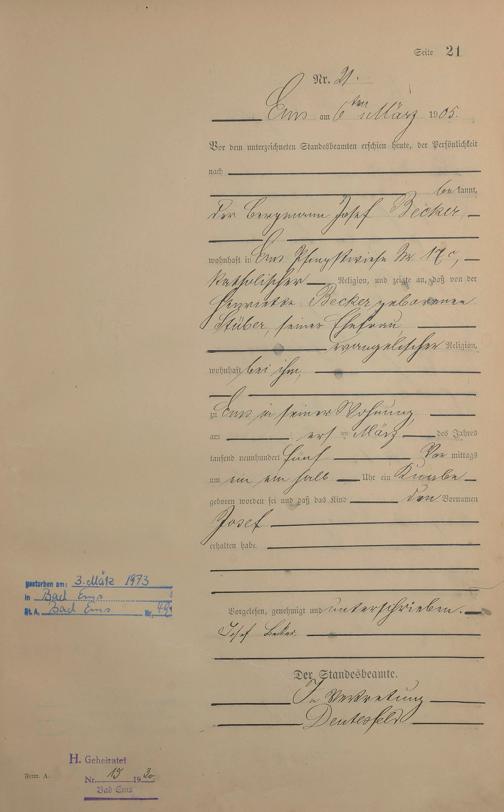 Seite 21
Nr. 21.
Ems am 6ten März 1905.
Vor dem unterzeichneten Standesbeamten erschien heute, der Persönlichkeit
nach
bekannt,
der Bergmann Josef Becker,
wohnhaft in Ems Pfingstwiese Nr. 17c,
katholischer Religion, und zeigte an, daß von der
Henriette Becker geborenen
Stüber, seiner Ehefrau,
evangelischer Religion,
wohnhaft bei ihm,
zu Ems in seiner Wohnung,
am ersten März des Jahres
tausend neunhundert fünf Vor mittags
um ein halb Uhr ein Knabe
geboren worden sei und daß das Kind den Vornamen
Josef
erhalten habe.
Vorgelesen, genehmigt und unterschrieben.
Josef Becker.
Der Standesbeamte.
In Vertretung
gestorben am: 3. März 1973
in Bad Ems
St. A. Bad Ems Nr.
H. Geheiratet
Nr. 19 1930
Bad Ems
Form. A.